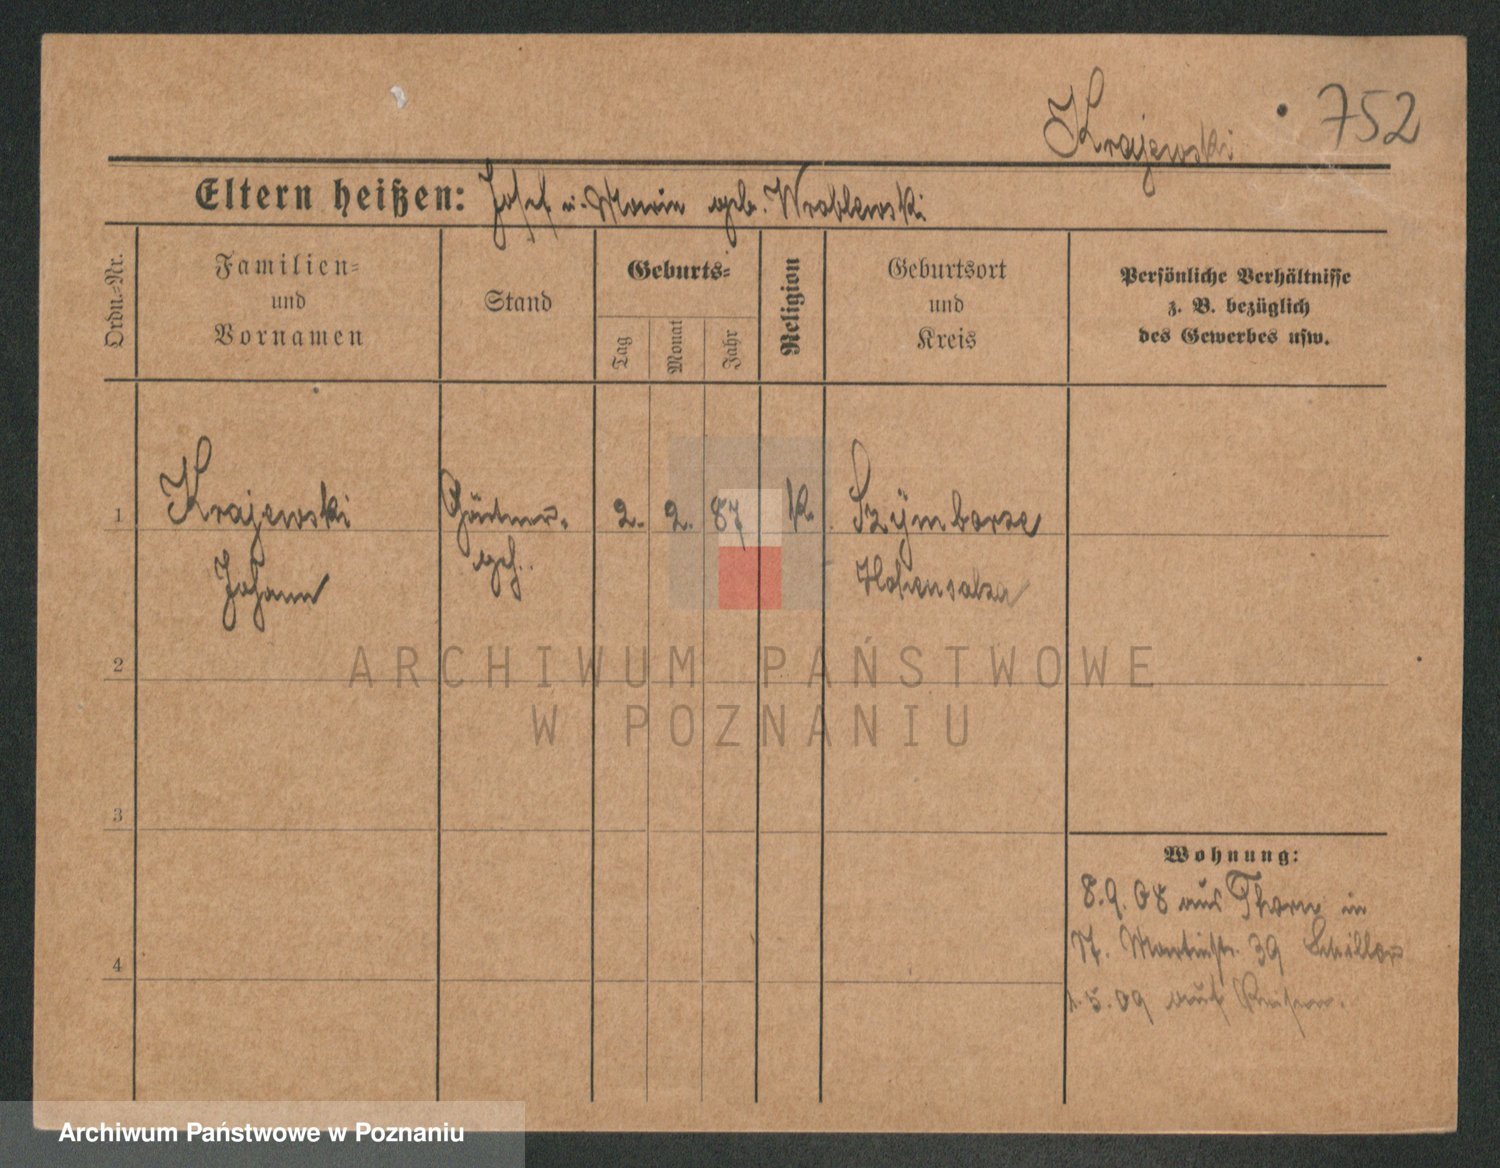 Krajewski
752
Eltern heißen: Josef u. Marie geb. Wroblewski
Ordn.=Nr.
Familien=
und
Vornamen
Stand
Geburts=
Tag
Monat
Jahr
Religion
Geburtsort
und
Kreis
Persönliche Verhältnisse
z. B. bezüglich
des Gewerbes usw.
1
Krajewski
Johann
Gärtner.
geh.
2. 2. 87
K.
Szÿmborze
Hohensalza
2
3
4
ARCHIWUM PAŃSTWOWE
W POZNANIU
Wohnung:
8.9.08 aus Thorn in
St. Martinstr. 39
1.5.09 auf Reisen.
Archiwum Państwowe w Poznaniu